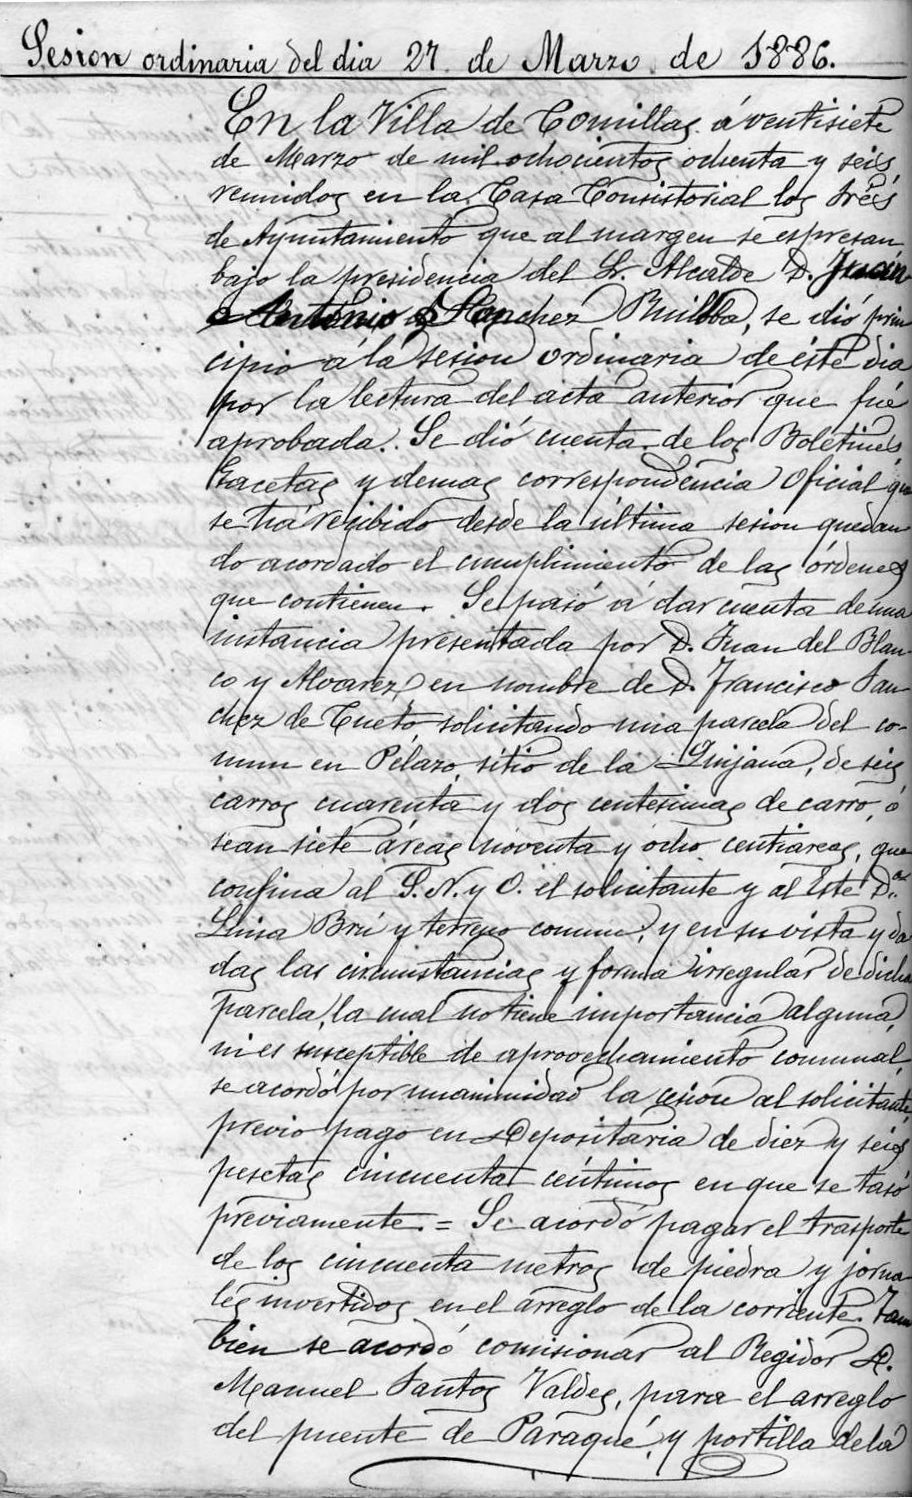 Sesion ordinaria del dia 27 de Marzo de 1886.
En la Villa de Comillas á ventisiete
de Marzo de mil ochocientos ochenta y seis,
reunidos en la Casa Consistorial los Srés
de Ayuntamiento que al margen se espresan
bajo la presidencia del Sr. Alcalde D. Juan
Antonio Sanchez Builba, se dió prin
cipio á la sesion ordinaria de éste dia
por la lectura del acta anterior que fué
aprobada. Se dió cuenta de los Boletines,
Gacetas y demas correspondencia oficial que
se há recibido desde la última sesion quedan
do acordado el cumplimiento de las órdenes
que contienen. Se pasó á dar cuenta de una
instancia presentada por D. Juan del Blan
co y Alvarez, en nombre de D. Francisco San
chez de Cueto solicitando una parcela del co-
mun en Pélazo, sitio de la Quijana, de seis
carros cuarenta y dos centesimas de carro, ó
sean siete áreas noventa y ocho centiareas, que
confina al S. N. y O. el solicitante y al Este D.ª
Luisa Brú y terreno comun, y en su vista y da
das las circunstancias y forma irregular de dicha
parcela, la cual no tiene importancia alguna,
ni es susceptible de aprovechamiento comunal,
se acordó por unanimidad la cesion al solicitante,
previo pago en Depositaria de diez y seis
pesetas cincuenta céntimos en que se tasó
previamente. = Se acordó pagar el trasporte
de los cincuenta metros de piedra y jorna
les invertidos en el arreglo de la corriente. Tam
bien se acordó comisionar al Regidor D.
Manuel Santos Valdes, para el arreglo
del puente de Paragué, y portilla de la